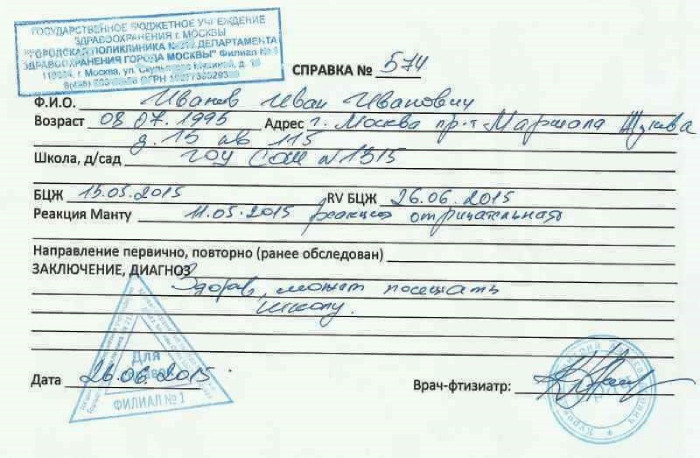 ГОСУДАРСТВЕННОЕ БЮДЖЕТНОЕ УЧРЕЖДЕНИЕ
ЗДРАВООХРАНЕНИЯ г. МОСКВЫ
"ГОРОДСКАЯ ПОЛИКЛИНИКА ДЕПАРТАМЕНТА
ЗДРАВООХРАНЕНИЯ ГОРОДА МОСКВЫ" Филиал
г. Москва, ул.
ОГРН
СПРАВКА № 574
Ф.И.О. Иванов Иван Иванович
Возраст 08 07.1995 Адрес г. Москва пр-т Маршала Жукова
д. 15 кв 115
Школа, д/сад ГОУ СОШ №1315
БЦЖ 15.05.2015 RV БЦЖ 26.06.2015
Реакция Манту 11.05.2015 реакция отрицательная
Направление первично, повторно (ранее обследован)
ЗАКЛЮЧЕНИЕ, ДИАГНОЗ Здоров, может посещать
школу.
Для
Дата 26.06.2015 Врач-фтизиатр:
ФИЛИАЛ № 1